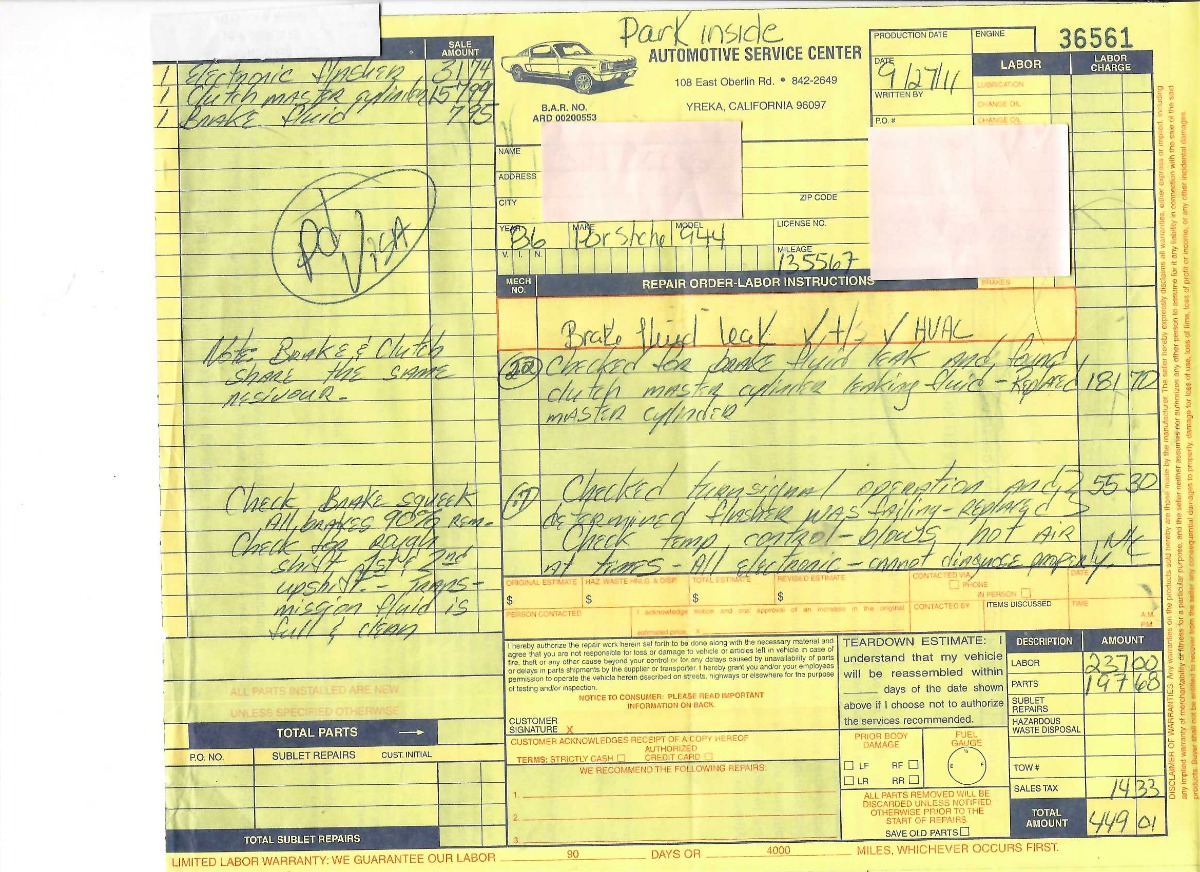 Park inside
AUTOMOTIVE SERVICE CENTER
108 East Oberlin Rd. • 842-2649
YREKA, CALIFORNIA 96097
B.A.R. NO.
ARD 00200553
PRODUCTION DATE
ENGINE
36561
DATE
9/27/11
WRITTEN BY
P.O. #
LABOR
LABOR CHARGE
LUBRICATION
CHANGE OIL
CHANGE OIL
BRAKES
SALE AMOUNT
1 Electronic flasher 31 74
1 Clutch master cylinder 157 99
1 Brake fluid 7 95
pd Visa
Note: Brake & Clutch
share the same
resivour.
Check Brake squeek
All brakes 90% rem-
Check for rough
shift 1st & 2nd
upshift. - Trans-
mission fluid is
full & clean
ALL PARTS INSTALLED ARE NEW
UNLESS SPECIFIED OTHERWISE
TOTAL PARTS
P.O. NO. SUBLET REPAIRS CUST. INITIAL
TOTAL SUBLET REPAIRS
NAME
ADDRESS
CITY
ZIP CODE
YEAR 86
MAKE Porshche
MODEL 944
LICENSE NO.
V. I. N.
MILEAGE
135567
MECH NO.
REPAIR ORDER-LABOR INSTRUCTIONS
Brake fluid leak √ t/s √ HVAC
22 Checked for brake fluid leak and found
clutch master cylinder leaking fluid - Replaced 181 70
master cylinder
17 Checked turnsignal operation and 55 30
determined flasher was failing - replaced
Check temp control - blows hot air
at times - All electronic - cannot diagnose properly. N/C
ORIGINAL ESTIMATE $
HAZ WASTE HNLG. & DISP. $
TOTAL ESTIMATE $
REVISED ESTIMATE $
CONTACTED VIA:
PHONE
IN PERSON
DATE
PERSON CONTACTED
I acknowledge notice and oral approval of an increase in the original
estimated price. X
CONTACTED BY
ITEMS DISCUSSED
TIME
A.M.
P.M.
I hereby authorize the repair work herein set forth to be done along with the necessary material and
agree that you are not responsible for loss or damage to vehicle or articles left in vehicle in case of
fire, theft or any other cause beyond your control or for any delays caused by unavailability of parts
or delays in parts shipments by the supplier or transporter. I hereby grant you and/or your employees
permission to operate the vehicle herein described on streets, highways or elsewhere for the purpose
of testing and/or inspection.
NOTICE TO CONSUMER: PLEASE READ IMPORTANT
INFORMATION ON BACK.
CUSTOMER
SIGNATURE X
CUSTOMER ACKNOWLEDGES RECEIPT OF A COPY HEREOF
TERMS: STRICTLY CASH
AUTHORIZED
CREDIT CARD
WE RECOMMEND THE FOLLOWING REPAIRS:
1.
2.
3.
TEARDOWN ESTIMATE: I
understand that my vehicle
will be reassembled within
____ days of the date shown
above if I choose not to authorize
the services recommended.
PRIOR BODY DAMAGE
LF RF
LR RR
FUEL GAUGE
E F
ALL PARTS REMOVED WILL BE
DISCARDED UNLESS NOTIFIED
OTHERWISE PRIOR TO THE
START OF REPAIRS.
SAVE OLD PARTS
DESCRIPTION AMOUNT
LABOR 237 00
PARTS 197 68
SUBLET REPAIRS
HAZARDOUS WASTE DISPOSAL
TOW #
SALES TAX 14 33
TOTAL AMOUNT 449 01
LIMITED LABOR WARRANTY: WE GUARANTEE OUR LABOR 90 DAYS OR 4000 MILES, WHICHEVER OCCURS FIRST.
DISCLAIMER OF WARRANTIES. Any warranties on the products sold hereby are those made by the manufacturer. The seller hereby expressly disclaims all warranties, either express or implied, including
any implied warranty of merchantability or fitness for a particular purpose, and the seller neither assumes nor authorizes any other person to assume for it any liability in connection with the sale of the said
products. Buyer shall not be entitled to recover from the seller any consequential damages, damages to property, damages for loss of use, loss of time, loss of profit or income, or any other incidental damages.